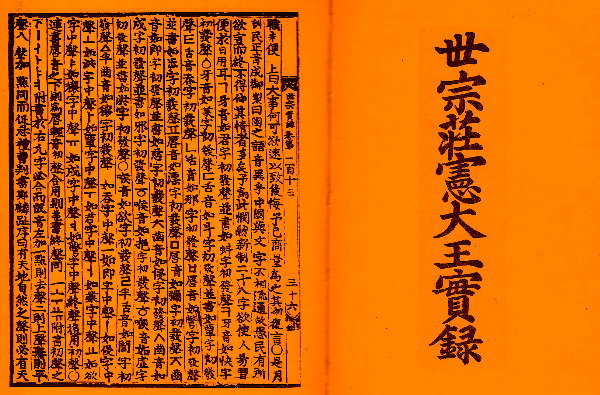 世宗莊憲大王實錄
上曰大事何可欲速以致後悔予已商量爲之其勿復言○是月
世宗實錄卷第一百十三 三十六
訓民正音成御製曰國之語音異乎中國與文字不相流通故愚民有所
欲言而終不得伸其情者多矣予爲此憫然新制二十八字欲使人易習
便於日用耳ㄱ牙音如君字初發聲並書如虯字初發聲ㅋ牙音如快字
初發聲ㆁ牙音如業字初發聲ㄷ舌音如斗字初發聲並書如覃字初發
聲ㅌ舌音如呑字初發聲ㄴ舌音如那字初發聲ㅂ脣音如彆字初發聲
並書如步字初發聲ㅍ脣音如漂字初發聲ㅁ脣音如彌字初發聲ㅈ齒
音如卽字初發聲並書如慈字初發聲ㅊ齒音如侵字初發聲ㅅ齒音如
戌字初發聲並書如邪字初發聲ㆆ喉音如挹字初發聲ㅎ喉音如虛字
初發聲並書如洪字初發聲ㅇ喉音如欲字初發聲ㄹ半舌音如閭字初
發聲ㅿ半齒音如穰字初發聲ㆍ如呑字中聲ㅡ如卽字中聲ㅣ如侵字中
聲ㅗ如洪字中聲ㅏ如覃字中聲ㅜ如君字中聲ㅓ如業字中聲ㅛ如欲
字中聲ㅑ如穰字中聲ㅠ如戌字中聲ㅕ如彆字中聲終聲復用初聲ㅇ
連書脣音之下則爲脣輕音初聲合用則並書終聲同ㆍㅡㅗㅜㅛㅠ附書初聲之
下ㅣㅏㅓㅑㅕ附書於右凡字必合而成音左加一點則去聲二則上聲無則平
聲入聲加點同而促急禮曹判書鄭麟趾序曰有天地自然之聲則必有天